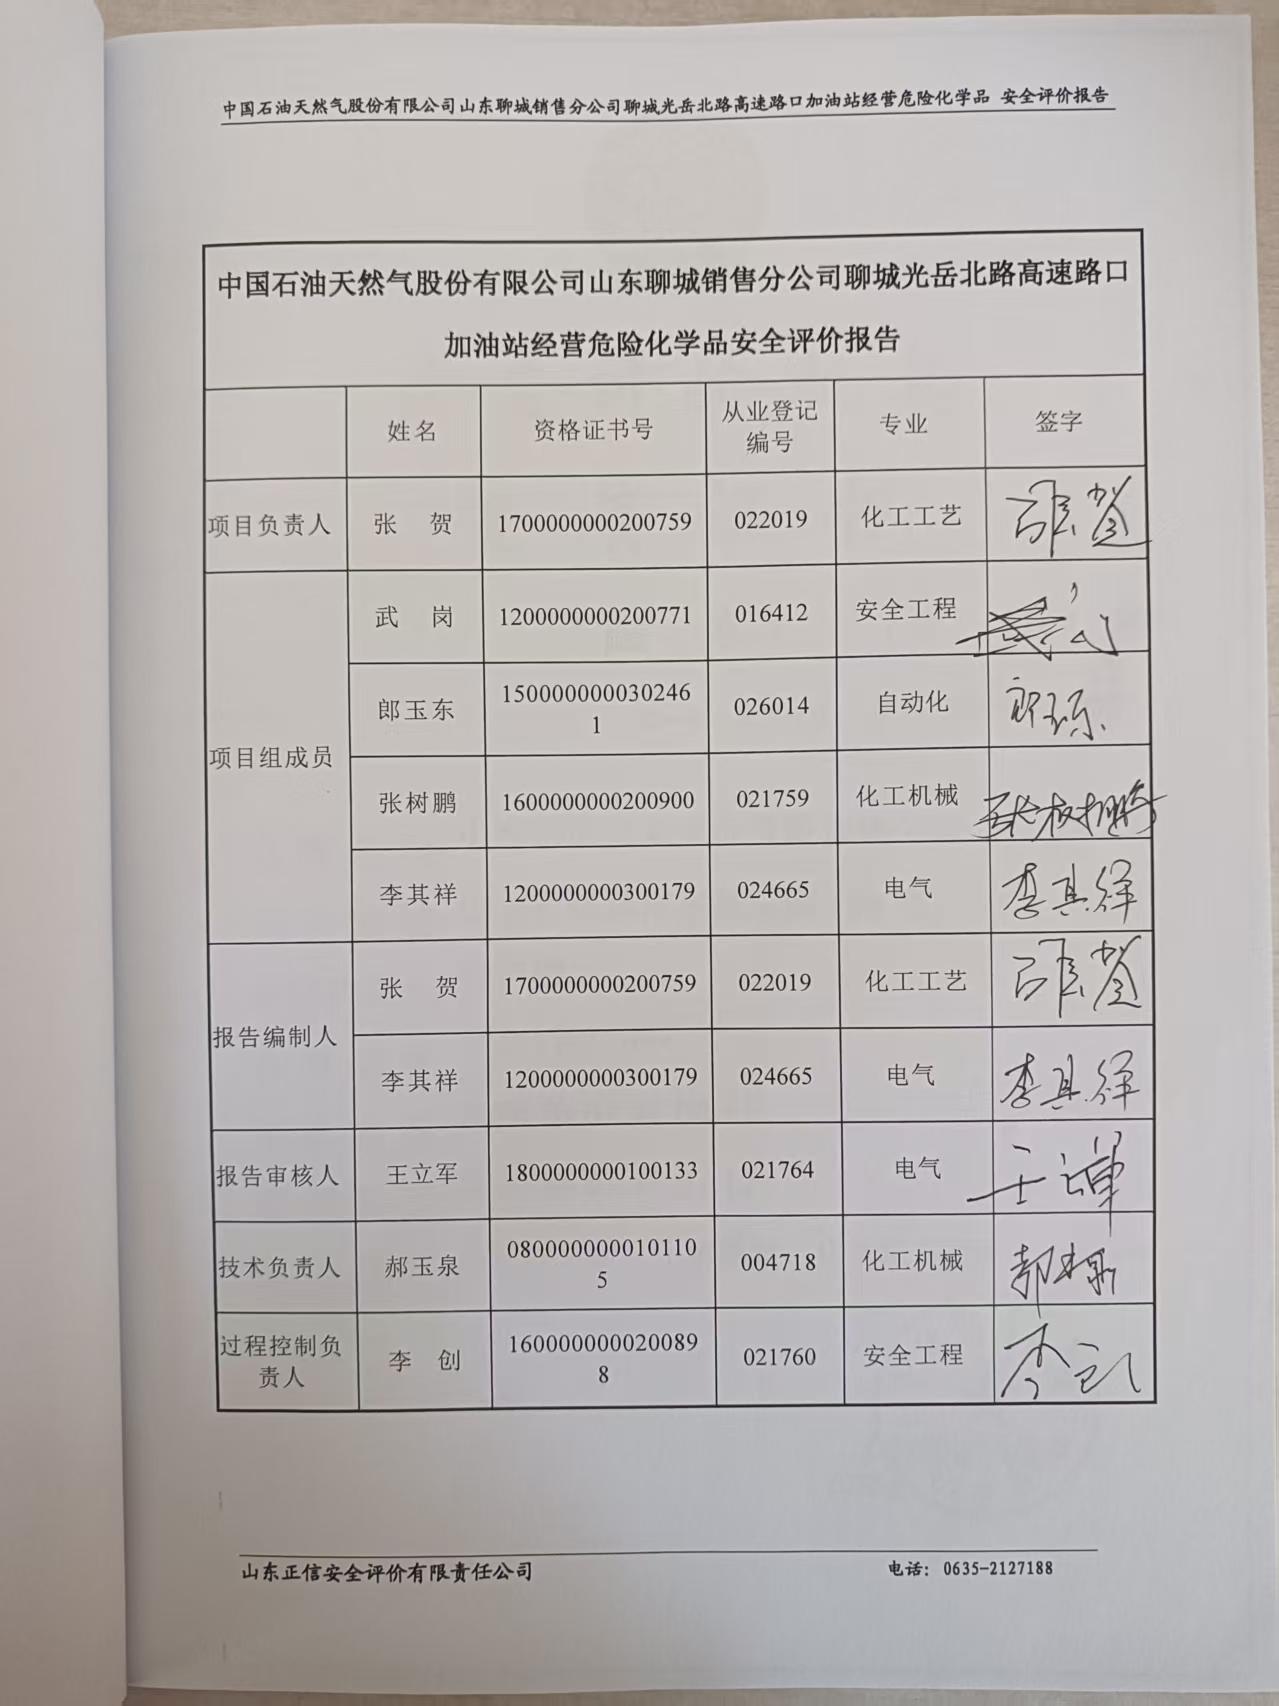 中国石油天然气股份有限公司山东聊城销售分公司聊城光岳北路高速路口加油站经营危险化学品 安全评价报告
中国石油天然气股份有限公司山东聊城销售分公司聊城光岳北路高速路口
加油站经营危险化学品安全评价报告
姓名 资格证书号 从业登记 专业 签字
编号
项目负责人 张 贺 1700000000200759 022019 化工工艺 张贺
武 岗 1200000000200771 016412 安全工程
郎玉东 150000000030246 026014 自动化 郎玉东
1
项目组成员
张树鹏 1600000000200900 021759 化工机械 张树鹏
李其祥 1200000000300179 024665 电气 李其祥
张 贺 1700000000200759 022019 化工工艺 张贺
报告编制人
李其祥 1200000000300179 024665 电气 李其祥
报告审核人 王立军 1800000000100133 021764 电气 王立军
技术负责人 郝玉泉 080000000010110 004718 化工机械 郝玉泉
5
过程控制负 李 创 160000000020089 021760 安全工程 李创
责人 8
山东正信安全评价有限责任公司 电话：0635-2127188